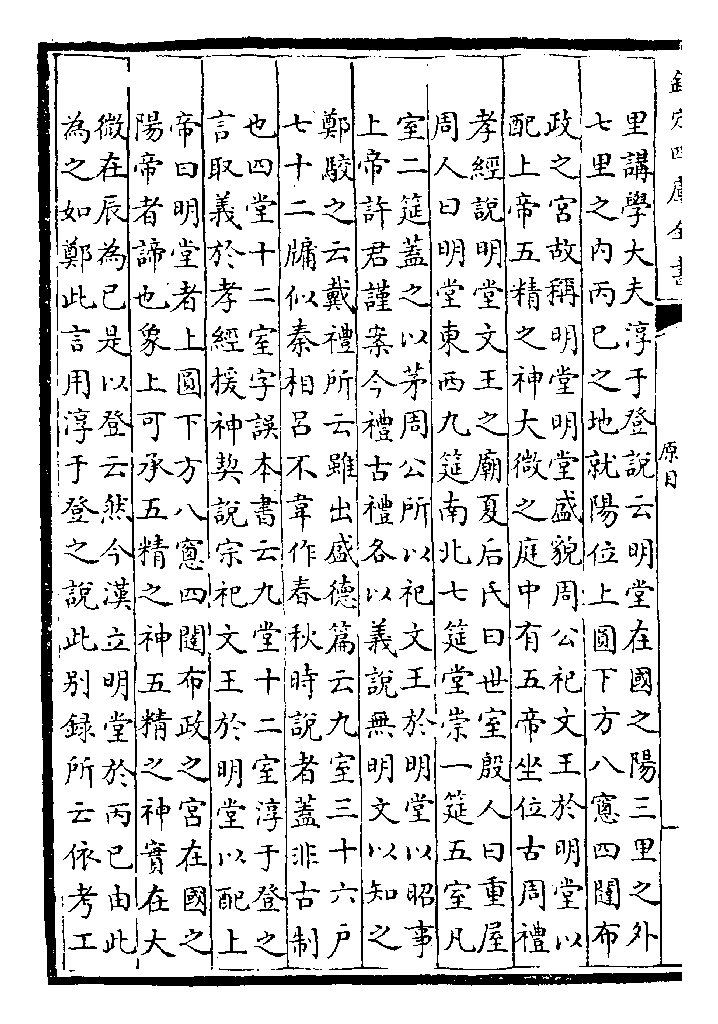 欽定四庫全書
原目
里講學大夫淳于登說云明堂在國之陽三里之外
七里之内丙巳之地就陽位上圓下方八窻四闥布
政之宫故稱明堂明堂盛貌周公祀文王於明堂以
配上帝五精之神大微之庭中有五帝坐位古周禮
孝經說明堂文王之廟夏后氏曰世室殷人曰重屋
周人曰明堂東西九筵南北七筵堂崇一筵五室凡
室二筵蓋之以茅周公所以祀文王於明堂以昭事
上帝許君謹案今禮古禮各以義說無明文以知之
鄭駮之云戴禮所云雖出盛德篇云九室三十六戶
七十二牖似秦相吕不韋作春秋時說者蓋非古制
也四堂十二室字誤本書云九堂十二室淳于登之
言取義於孝經援神契說宗祀文王於明堂以配上
帝曰明堂者上圓下方八窻四闥布政之宫在國之
陽帝者諦也象上可承五精之神五精之神實在大
微在辰為巳是以登云然今漢立明堂於丙巳由此
為之如鄭此言用淳于登之說此别録所云依考工